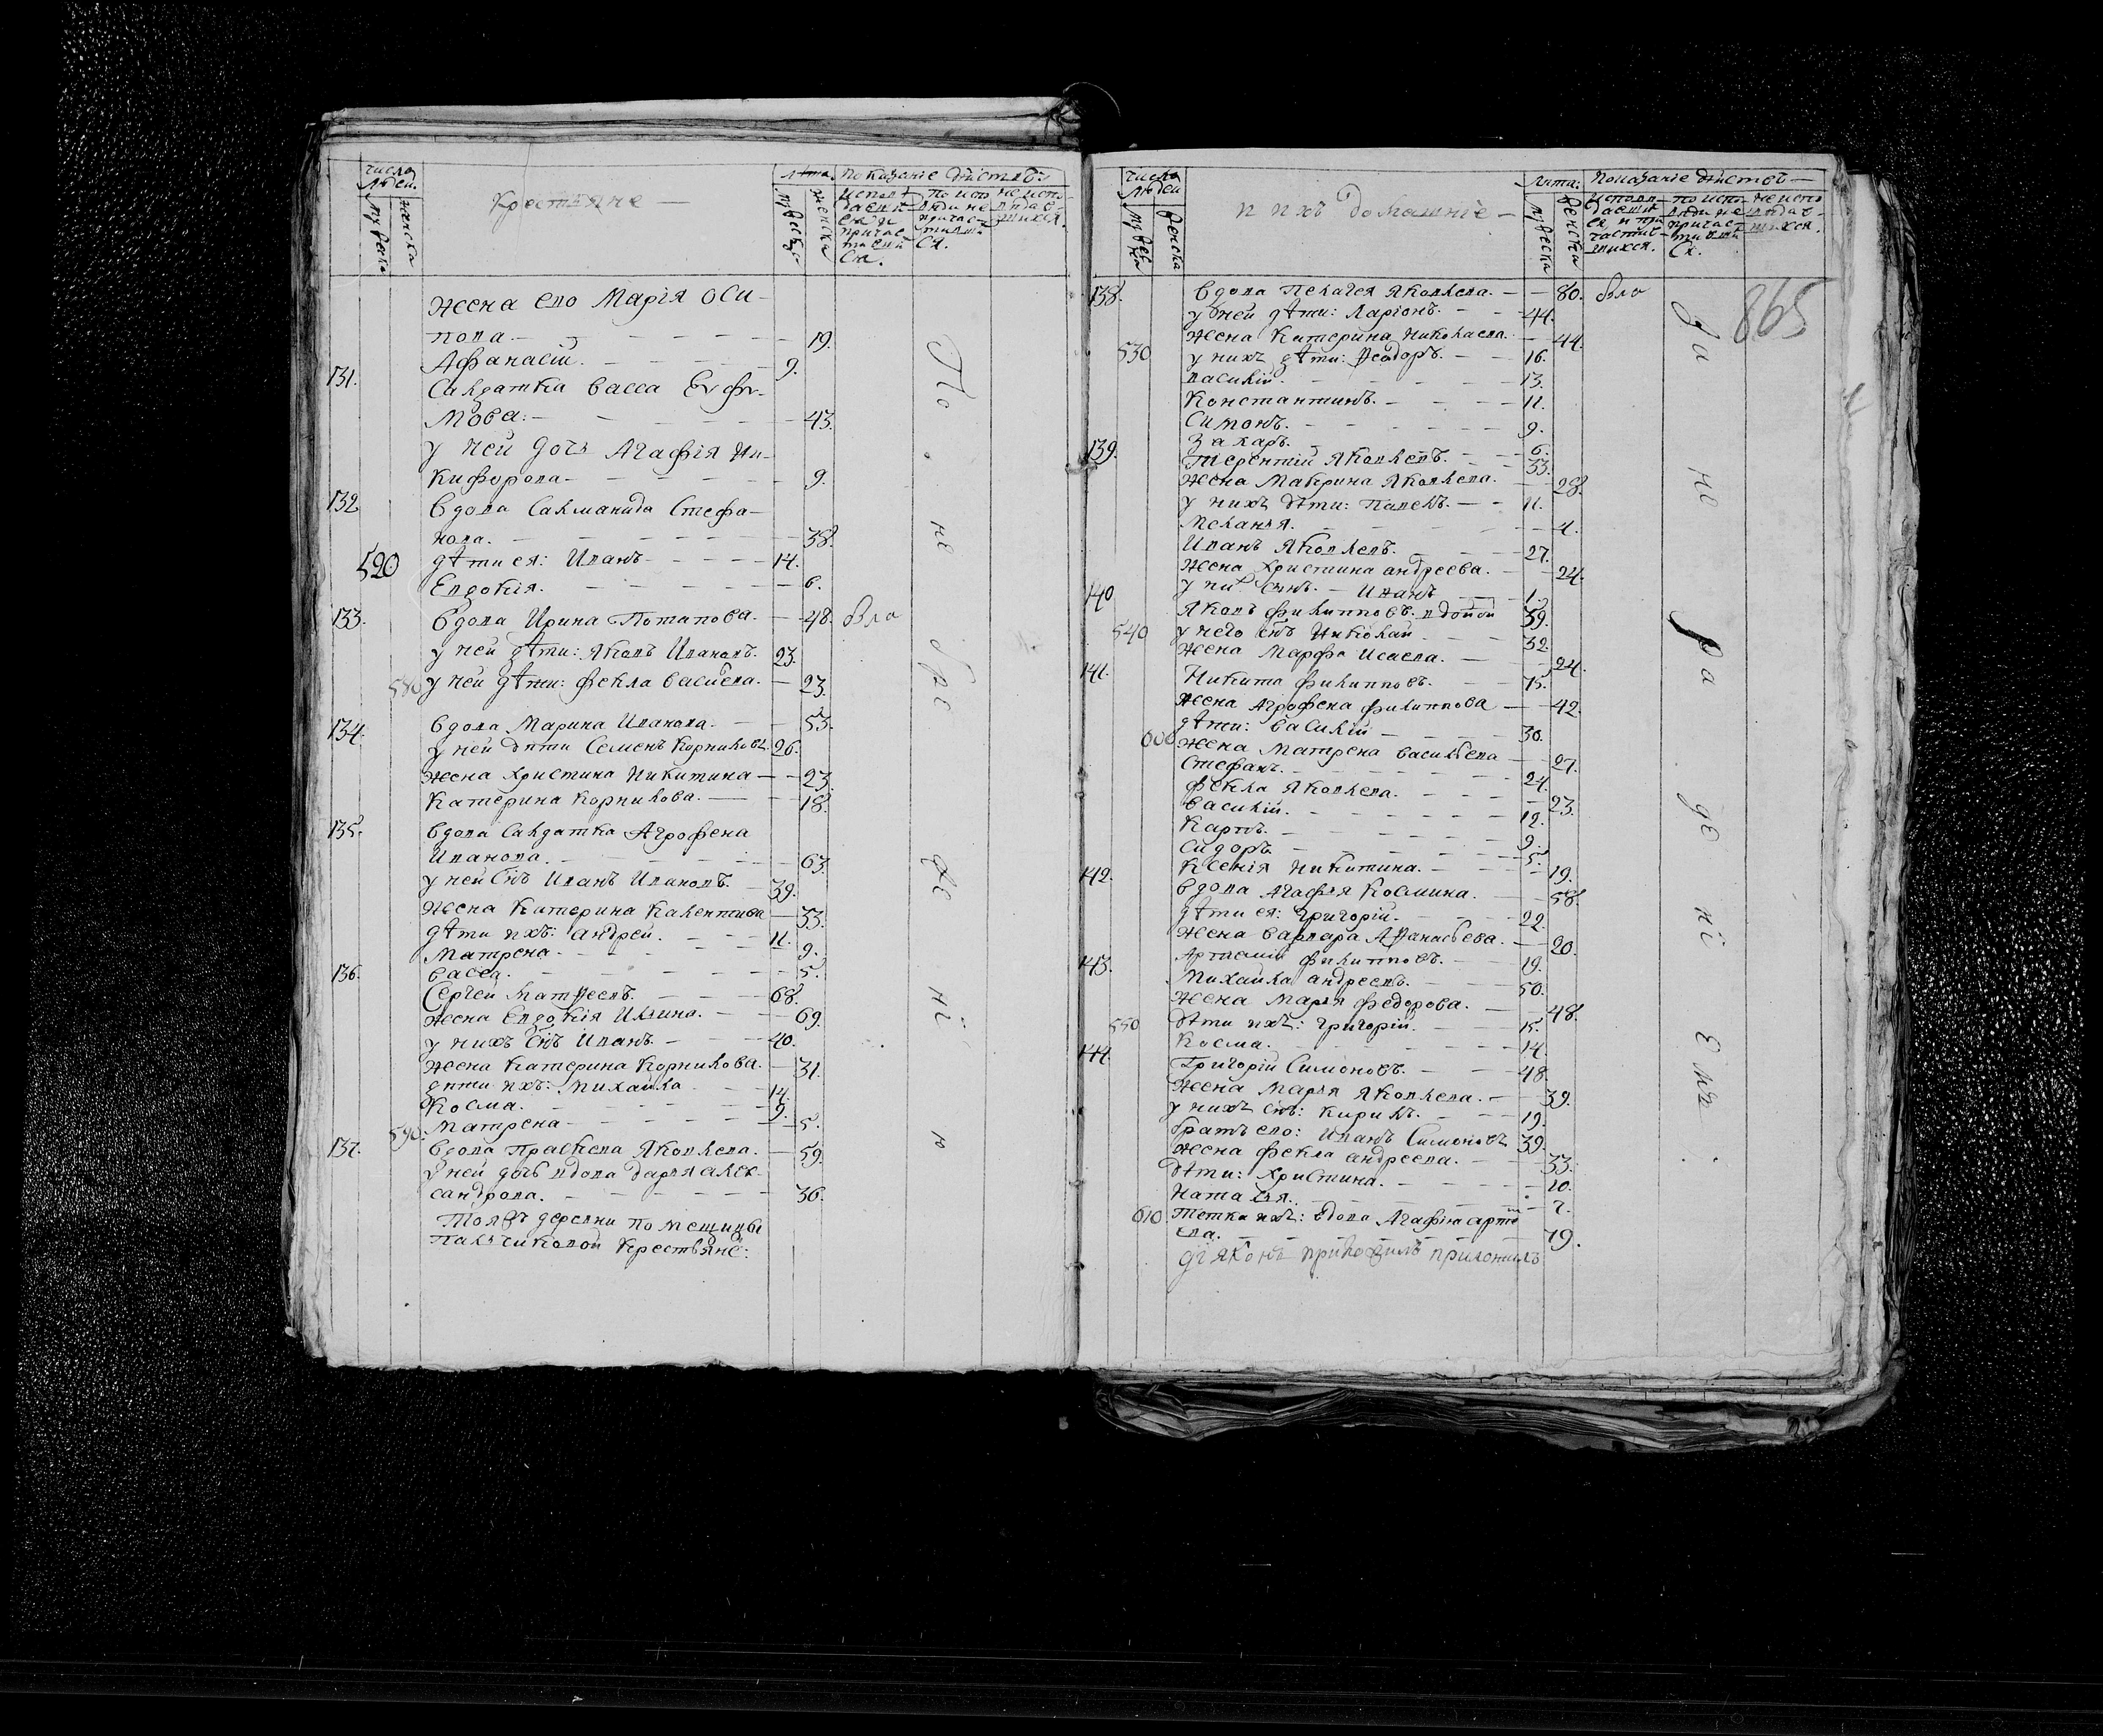 число людей.
мужеска
женска
Крестьяне —
лѣта.
мужеска
женска
показаніе дѣйствъ:
исповѣ
давши
ся и
причас
тивши
ся.
по испо
вѣди не
причас
тивши
ся.
не испо
вѣдав
шихся.
Жена его Марія Оси-
пова — 19.
Афанасій. — 9.
131. Салдатка Васса Евфи-
мова: — 43.
у ней дочь Агафія Ни-
кифорова — 9.
132 Вдова Салманида Стефа-
нова. — 38.
520 дѣти ея: Иванъ — 14.
Евдокія. — 6.
133. Вдова Ирина Потапова. — 48. бла
у ней дѣти: Яковъ Ивановъ. 23.
580 у ней дѣти: Фекла Васиева. — 23.
134. Вдова Марина Иванова. — 53.
у ней дѣти Семенъ Корниловъ. 26.
жена Христина Никитина — 23.
Катерина Корнилова. — 18.
135. Вдова Салдатка Агрофена
Иванова. — 63.
у ней Снъ Иванъ Ивановъ. — 39.
Жена Катерина Калентиева — 33.
дѣти ихъ: Андрей. — 11.
Матрена. — 9.
Васса. — 5.
136. Сергей Матѳеевъ. — 68.
жена Евдокія Ильина. — 69.
у нихъ Снъ Иванъ. — 40.
Жена Катерина Корнилова. — 31.
дѣти ихъ: Михаила — 14.
Косма. — 9.
590. Матрена — 5.
137. Вдова Прасковья Яковлева. — 59.
у ней дочь вдова Дарья Алек-
сандрова. — 36.
Тояжъ деревни помещицы
Пальчиковой крестьяне:
По не бре же ні ю
число людей
мужеска
женска
и ихъ домашніе —
лѣта:
мужеска
женска
показаніе дѣйствъ —
исповѣ
давши
ся и при
частив
шихся.
по испо
вѣди не
причас
тивши
ся.
не испо
вѣдав
шихся.
865
138. Вдова Пелагея Яковлева. — 80. бла
у ней дѣти: Ларіонъ. — 44.
Жена Катерина Николаева. — 44.
530 у нихъ дѣти: Ѳеодоръ. — 16.
Василій. — 13.
Константинъ. — 11.
Симонъ. — 9.
Захаръ. — 6.
139. Терентій Яковлевъ. — 33.
Жена Макрина Яковлева. — 28.
у нихъ дѣти: Павелъ. — 11.
Меланья. — 4.
Иванъ Яковлевъ. — 27.
Жена Христина Андреева. — 24.
у ни Снъ. — Иванъ — 1.
140 Яковъ Филипповъ. вдовой 59.
540 у него Снъ Николай — 32.
жена Марфа Исаева. — 24.
141. Никита Филипповъ. — 75.
Жена Агрофена Филиппова — 42.
дѣти: Василій — 30.
600 Жена Матрена Васильева — 27.
Стефанъ. — 24.
Фекла Яковлева. — 23.
Василій. — 12.
Карпъ. — 9.
Сидоръ. — 5.
Ксенія Никитина. — 19.
142. Вдова Агафья Космина. — 58.
дѣти ея: Григорій. — 22.
Жена Варвара Аѳанасьева. — 20.
Артемій Филипповъ. — 19.
143. Михайла Андреевъ. — 50.
Жена Марья Федорова. — 48.
550 дѣти ихъ: Григорій. — 15.
Косма. — 14.
144. Григорій Симоновъ. — 48.
Жена Марья Яковлева. — 39.
у нихъ Снъ: Кирилъ. — 19.
братъ его: Иванъ Симоновъ 39.
жена Фекла Андреева. — 33.
дѣти: Христина. — 10.
Наталья. — 7.
610 тетка ихъ: вдова Агафья Арте
ева. — 79.
діяконъ приложилъ
За не ра де ні емъ.